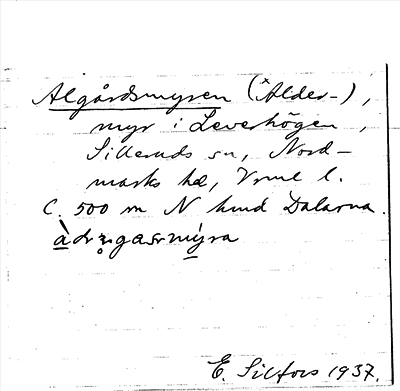 Algårdsmyren (*Alder-),
myr i Leverhögen,
Silleruds sn, Nord-
marks hd, Vrml l.
C. 500 m N hmd Dalarna.
E. Silfors 1937.